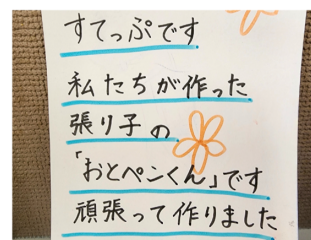 すてっぷです
私たちが作った
張り子の
「おとペンくん」です
頑張って作りました